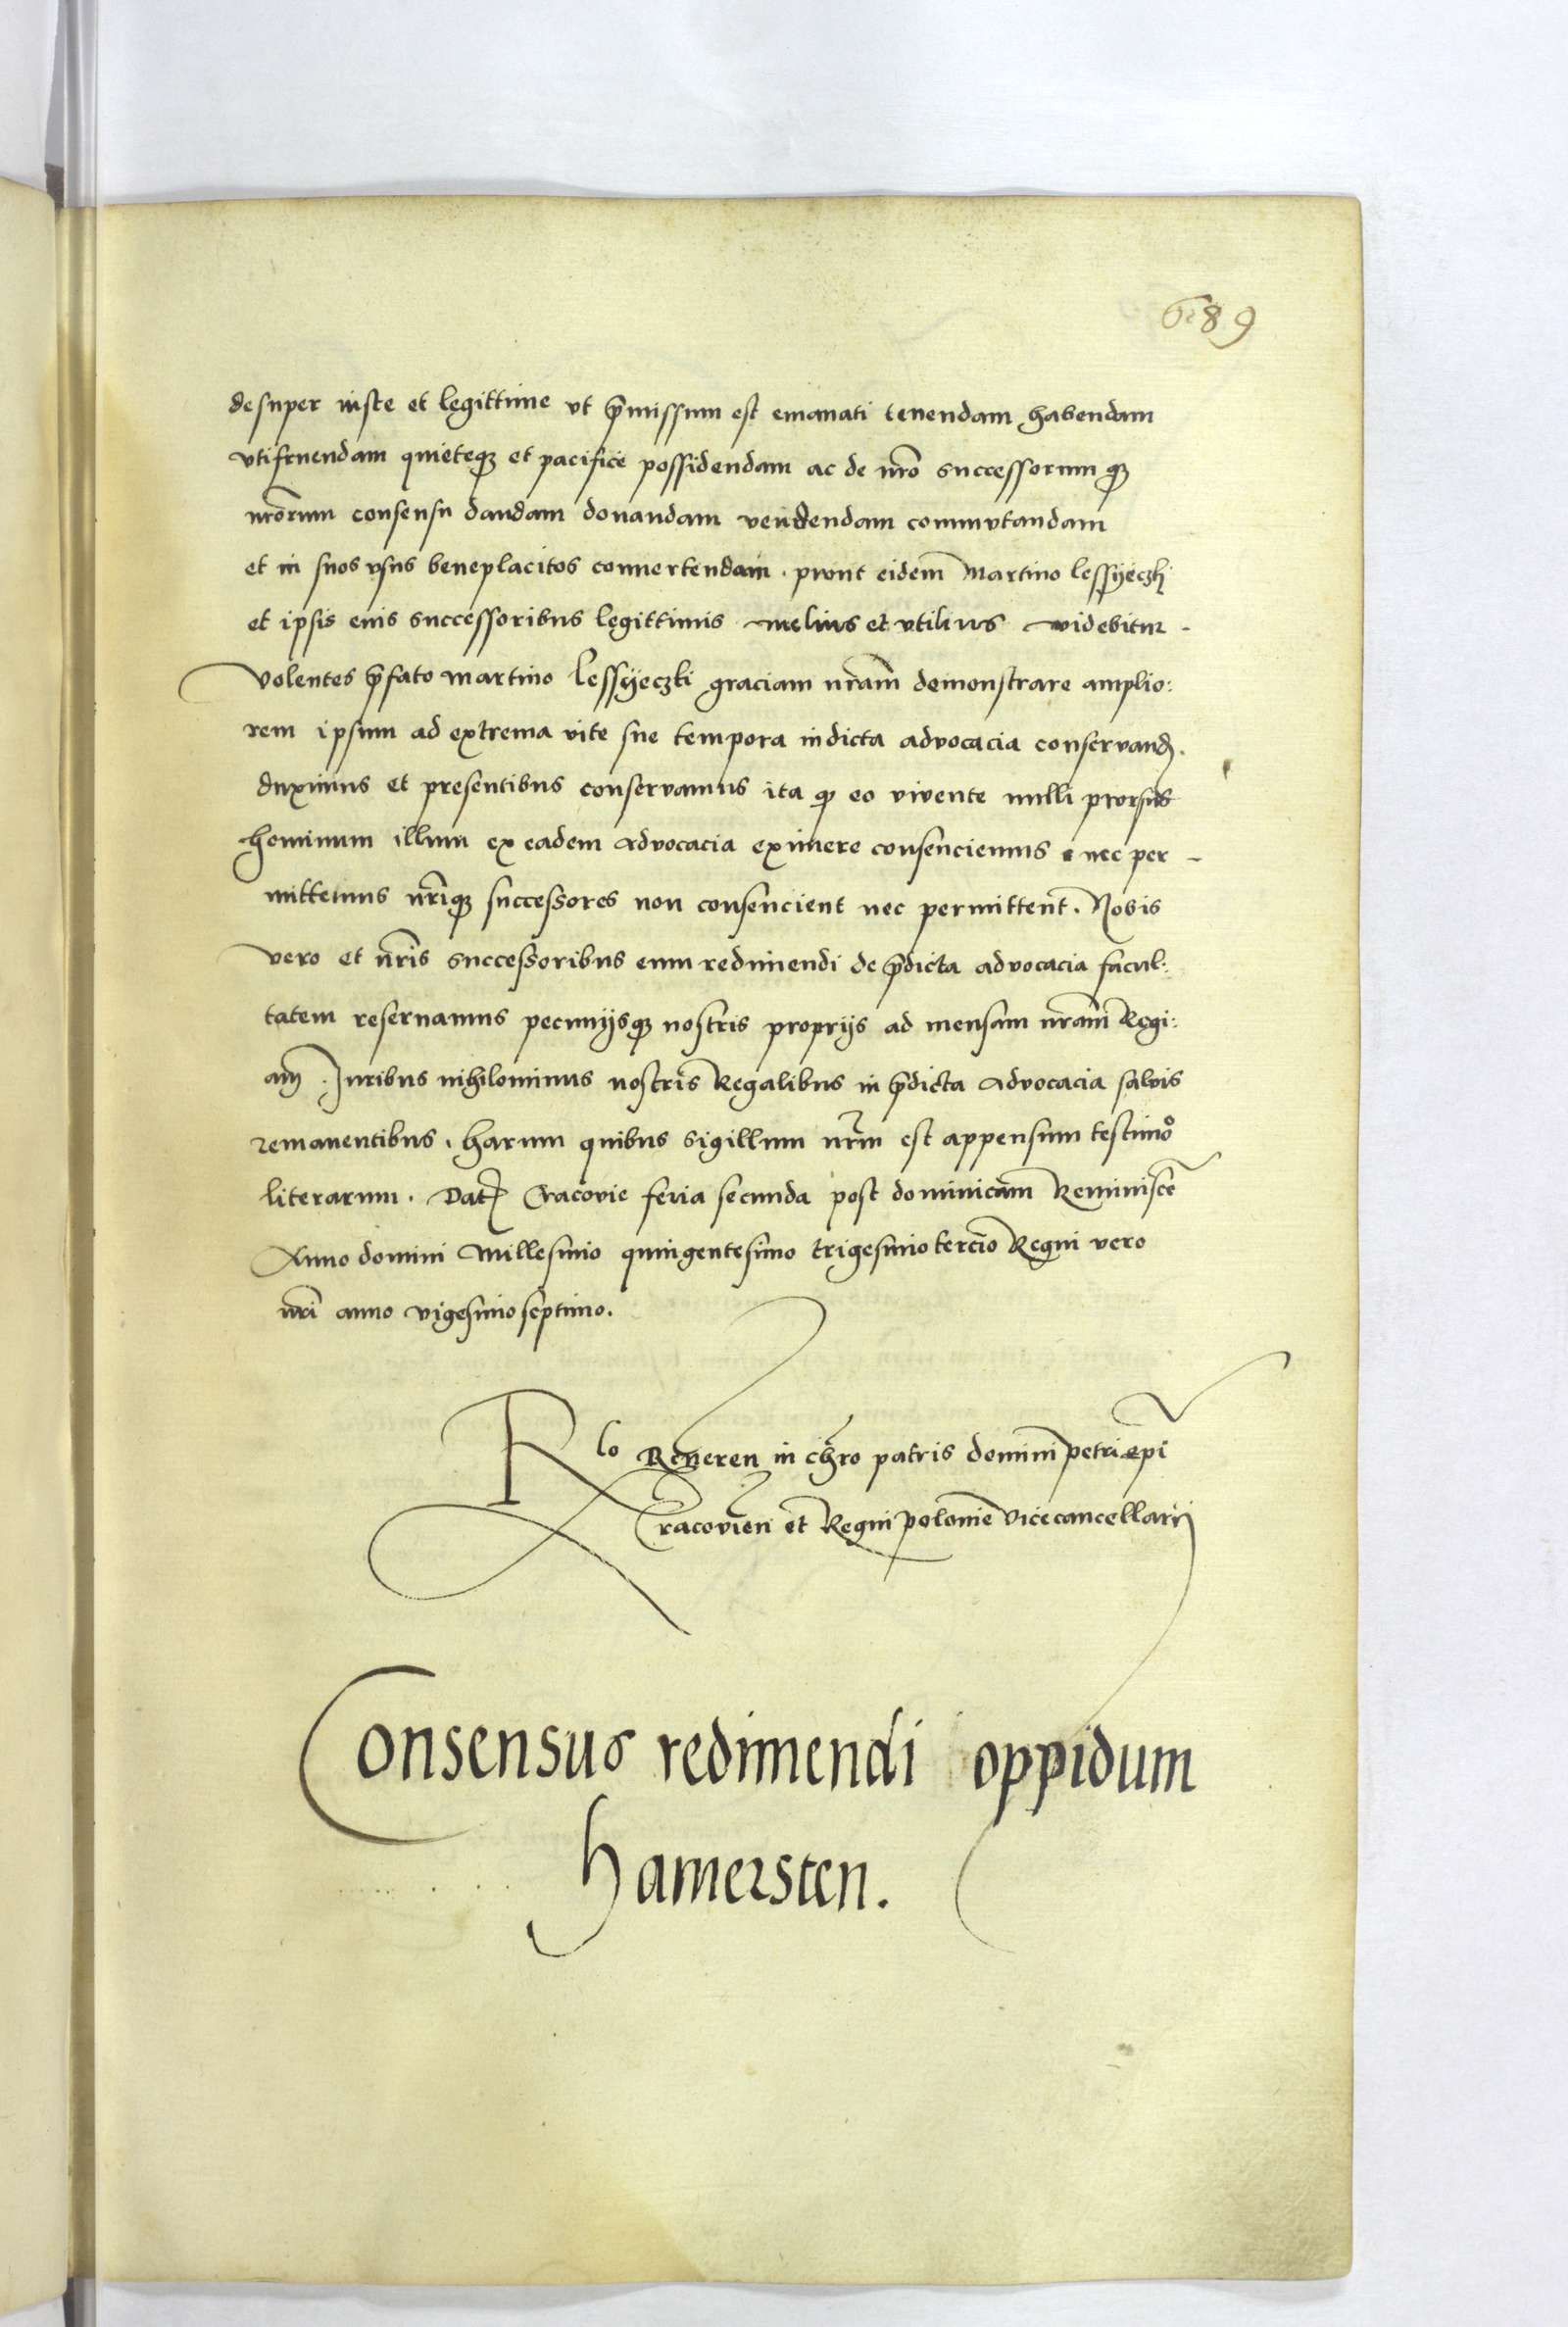 689
desuper iuste et legittime vt p̄missum est emanati tenendam habendam
vtifruendam quieteqꝫ et pacifice possidendam ac de nr̄o successorumqꝫ
nr̄orum consensu dandam donandam vendendam commutandam
et in suos vsus beneplacitos conuertendam . prout eidem̄ Martino lessyeczki
et ipsis eius successoribus legittimis melius et vtilius videbitur .
Volentes p̄fato Martino Lessyeczki graciam nr̄am demonstrare amplio:
rem ipsum ad extrema vite sue tempora in dicta advocacia conservand̄ .
duximus et presentibus conservamus ita qꝫ eo vivente nulli prorsus
hominum illum ex eadem advocacia eximere consenciemus nec per -
mittemus nr̄iqꝫ successores non consencient nec permittent̄ . Nobis
vero et nr̄is successoribus eum redimendi de p̄dicta advocacia facul:
tatem reseruamus pecunijsqꝫ nostris proprijs ad mensam nr̄am Regi:
am̄ . Juribus nihilominus nostris Regalibus in p̄dicta advocacia salvis
remanentibus . harum quibus sigillum nr̄m est appensum testimo
literarum . Dat̄ Cracovie feria secunda post dominicam Reminisce
Anno domini Millesimo quingentesimo trigesimotercio Regni vero
nr̄i anno vigesimoseptimo .
Rlo Reueren in chr̄o patris domini petri ep̄i
Cracovien̄ et Regni polonie vicecancellarij
Consensus redimendi oppidum
hamersten .